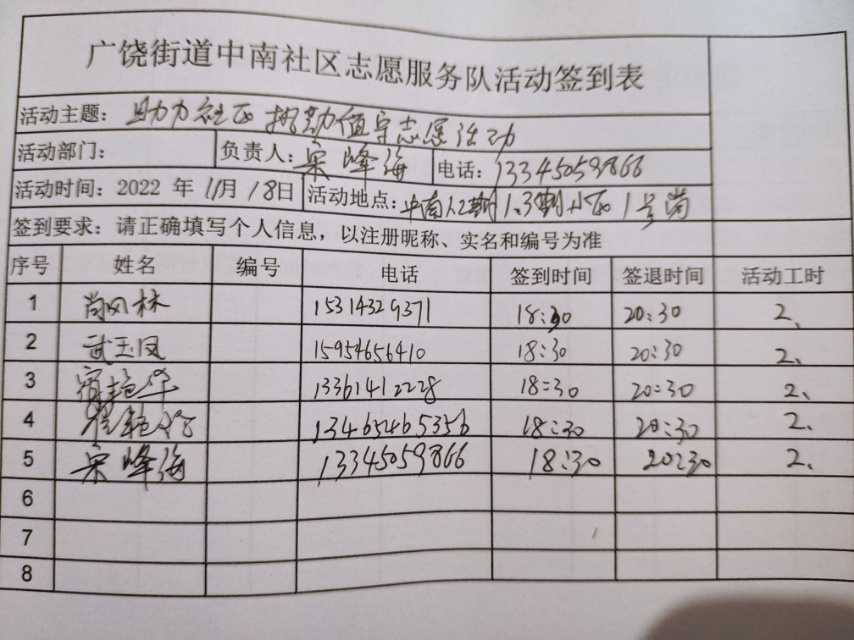 广饶街道中南社区志愿服务队活动签到表
活动主题: 助力社区执勤值守志愿活动
活动部门: 负责人: 宋峰海 电话: 13345059866
活动时间: 2022 年 11月 18日 活动地点: 中南 1.3期小区1号岗
签到要求: 请正确填写个人信息，以注册昵称、实名和编号为准
序号 姓名 编号 电话 签到时间 签退时间 活动工时
1 尚风林 15314329371 18:30 20:30 2、
2 武玉凤 15954656410 18:30 20:30 2、
3 艳华 13361412228 18:30 20:30 2、
4 13465465356 18:30 20:30 2、
5 宋峰海 13345059866 18:30 20:30 2、
6
7
8